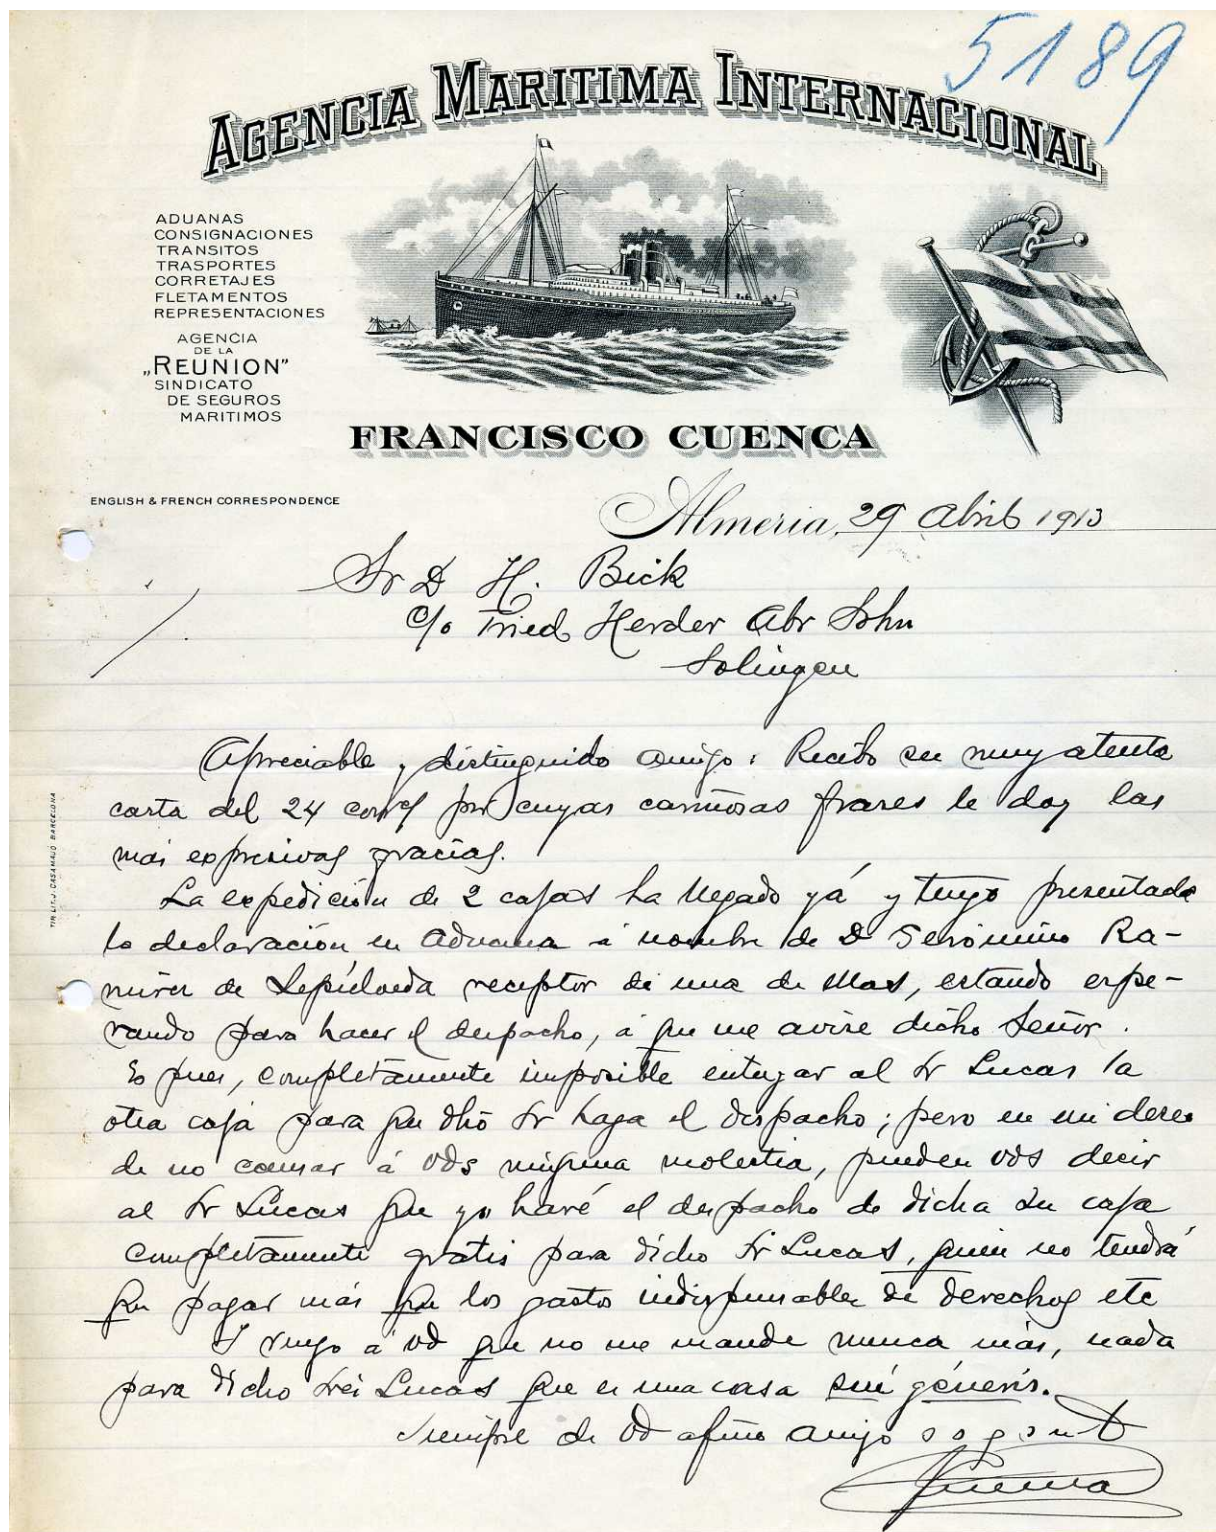 5189
AGENCIA MARITIMA INTERNACIONAL
ADUANAS
CONSIGNACIONES
TRANSITOS
TRASPORTES
CORRETAJES
FLETAMENTOS
REPRESENTACIONES
AGENCIA
DE LA
„REUNION"
SINDICATO
DE SEGUROS
MARITIMOS
FRANCISCO CUENCA
ENGLISH & FRENCH CORRESPONDENCE
Almeria, 29 Abril 1913
Sr D H. Bick
c/o Fried Herder Abr Sohn
Solingen
Apreciable y distinguido amigo: Recibo su muy atenta
carta del 24 por cuyas cariñosas frases le doy las
mas expresivas gracias.
La expedición de 2 cajas ha llegado yá y tengo presentada
la declaración en Aduana á nombre de D Gerónimo Ra-
mirez de Sepúlveda receptor de una de ellas, estando espe-
rando para hacer el despacho, á que me avise dicho Señor.
Es pues, completamente imposible entregar al Sr Lucas la
otra caja para que dho Sr haga el despacho; pero en mi deseo
de no causar á Vds ninguna molestia, pueden Vds decir
al Sr Lucas que yo haré el despacho de dicha su caja
completamente gratis para dicho Sr Lucas, quien no tendrá
que pagar más que los gastos indispensables de derechos etc
Y ruego á Vd que no me mande nunca más, nada
para dicho Lucas que es una casa sui géneris.
Siempre de Vd afmo amigo
Cuenca
TIP. LIT. J. CASAMAJO BARCELONA